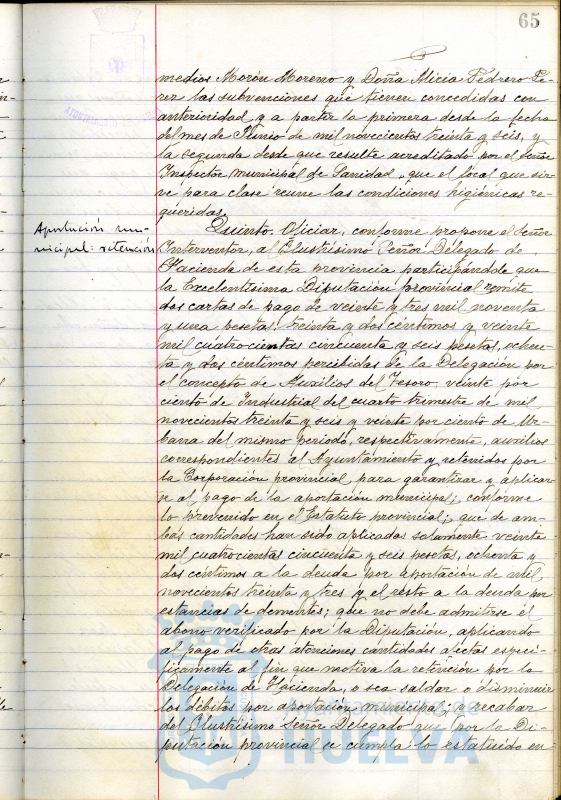 65
medios Morón Moreno y Doña Alicia Pedrero Pe-
rer las subvenciones que tienen concedidas con
anterioridad y a partir la primera desde la fecha
del mes de Junio de mil novecientos treinta y seis, y
la segunda desde que resulte acreditado por el señor
Inspector municipal de Sanidad, que el local que sir-
ve para clase reune las condiciones higiénicas re-
queridas.
Aportación mu-
nicipal: retención
Quinto. Oficiar, conforme propone el Señor
Interventor, al Ilustrísimo Señor Delegado de
Hacienda de esta provincia participándole que
la Excelentísima Diputación provincial remite
dos cartas de pago de veinte y tres mil noventa
y una pesetas, treinta y dos céntimos y veinte
mil cuatrocientas cincuenta y seis pesetas, ochen-
ta y dos céntimos percibidas de la Delegación por
el concepto de Auxilios del Tesoro veinte por
ciento de Industrial del cuarto trimestre de mil
novecientos treinta y seis y veinte por ciento de Ur-
bana del mismo periodo, respectivamente, auxilios
correspondientes al Ayuntamiento y retenidos por
la Corporación provincial para garantizar y aplicar-
se al pago de la aportación municipal; conforme
lo prevenido en el Estatuto provincial; que de am-
bas cantidades han sido aplicadas solamente veinte
mil cuatrocientas cincuenta y seis pesetas, ochenta y
dos céntimos a la deuda por aportación de mil
novecientos treinta y tres y el resto a la deuda por
estancias de dementes; que no debe admitirse el
abono verificado por la Diputación, aplicando
al pago de otras atenciones cantidades afectas especí-
ficamente al fin que motiva la retención por la
Delegación de Hacienda, o sea saldar o disminuir
los débitos por aportación municipal, y recabar
del Ilustrísimo Señor Delegado que por la Di-
putación provincial se cumpla lo estatuido en-
HUELVA